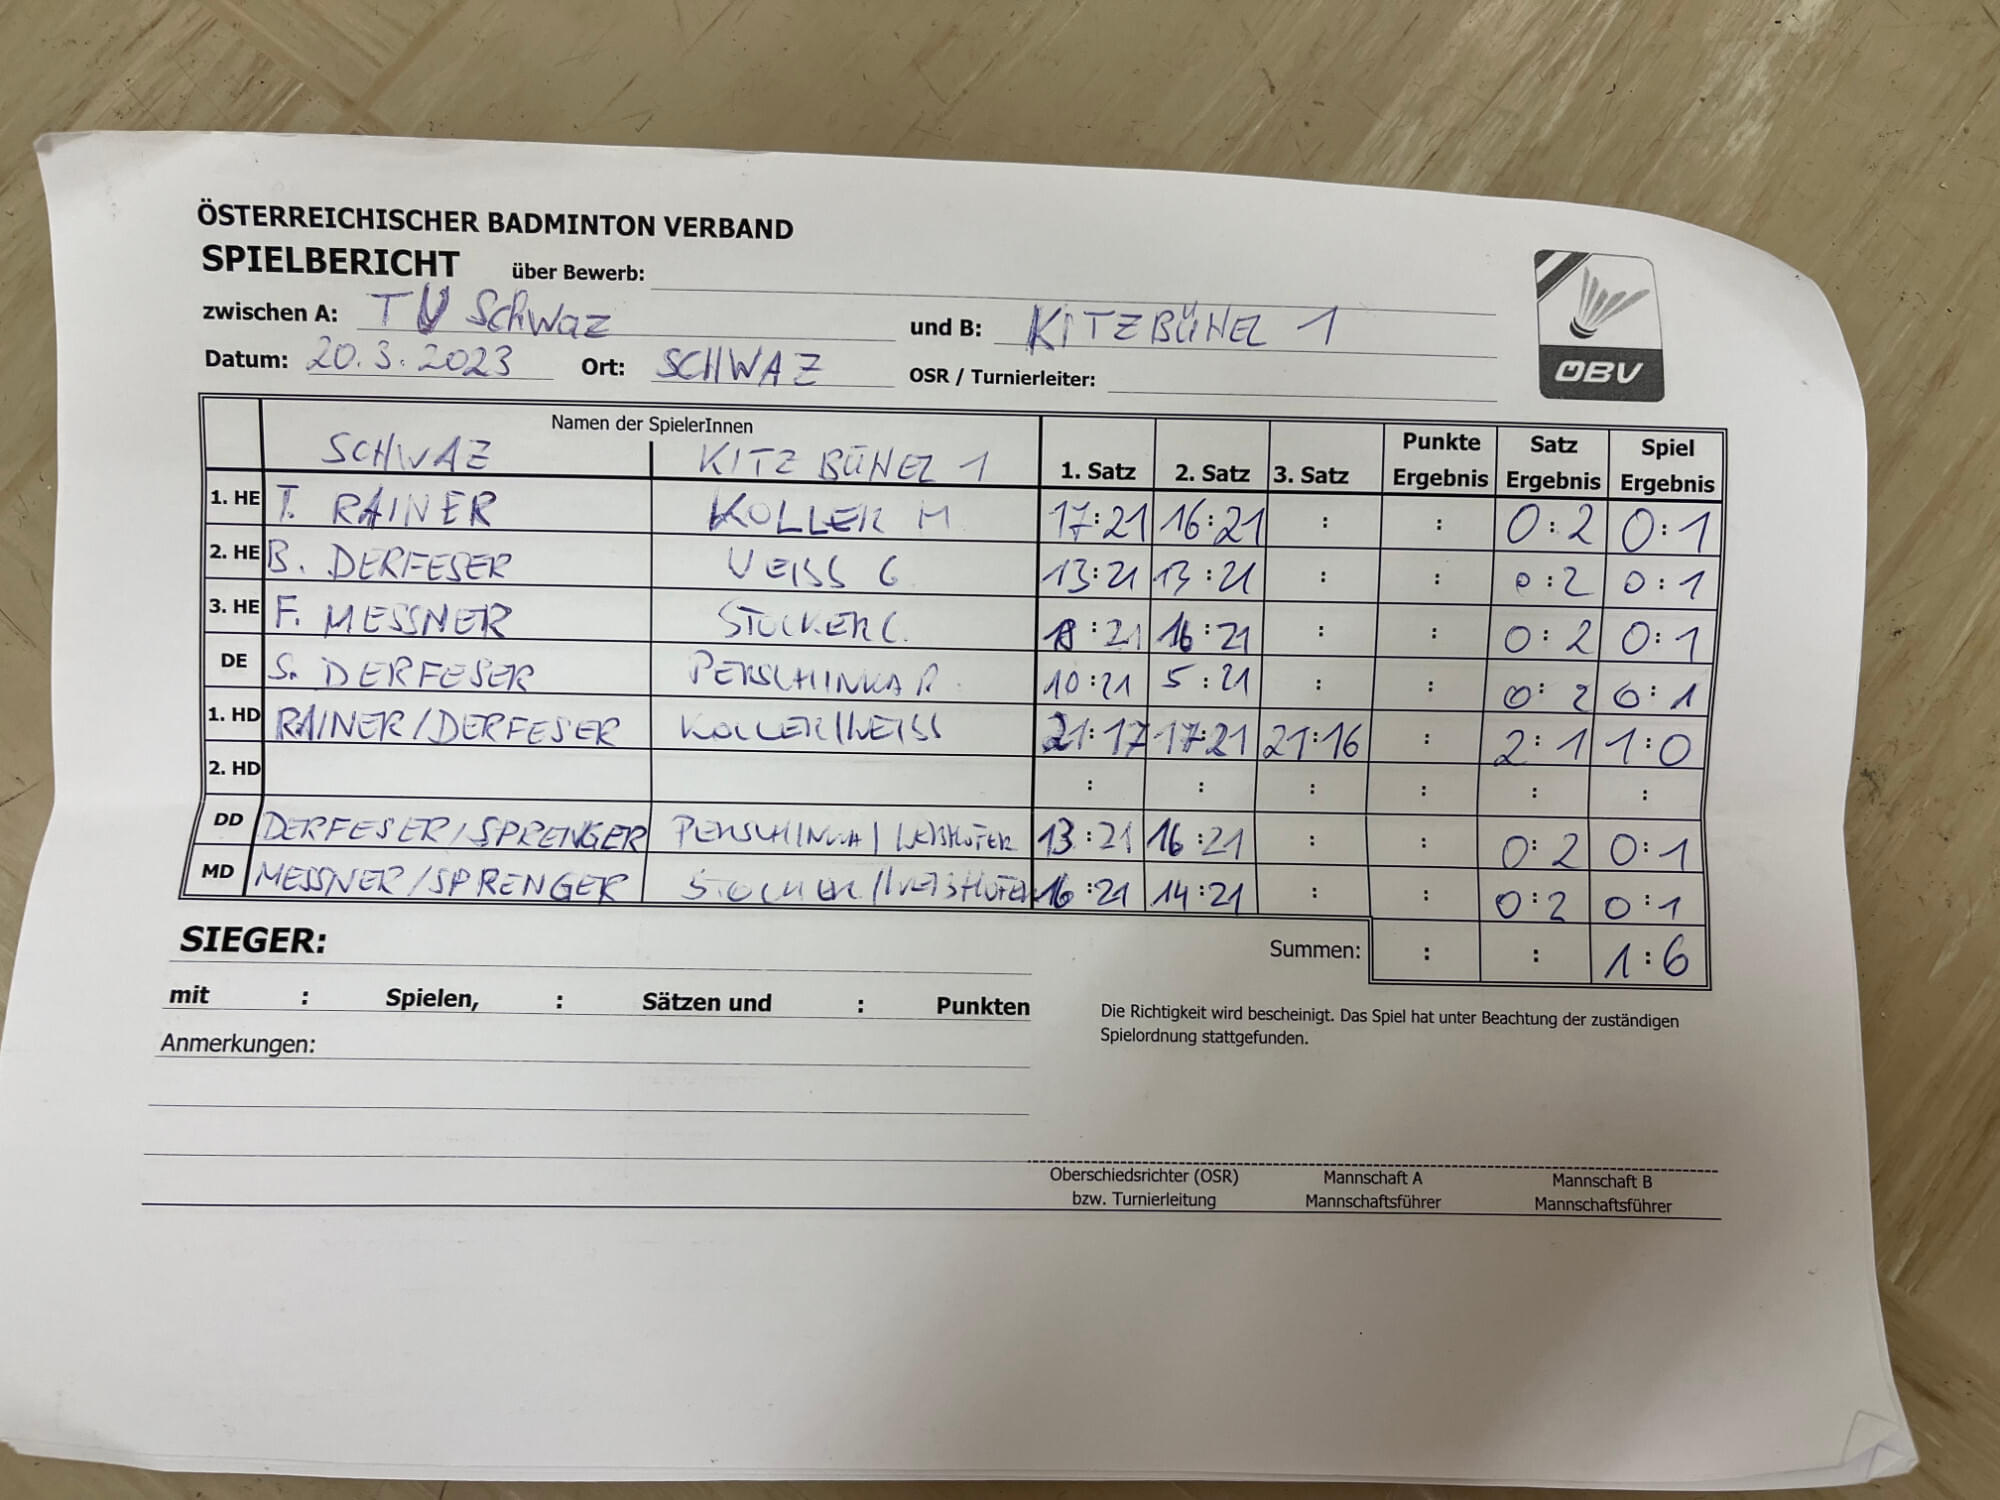 ÖSTERREICHISCHER BADMINTON VERBAND
SPIELBERICHT über Bewerb:
zwischen A: TV Schwaz und B: KITZBÜHEL 1
Datum: 20.3.2023 Ort: SCHWAZ OSR / Turnierleiter:
ÖBV
Namen der SpielerInnen
SCHWAZ KITZBÜHEL 1 1. Satz 2. Satz 3. Satz Punkte Ergebnis Satz Ergebnis Spiel Ergebnis
1. HE T. RAINER KOLLER M. 17:21 16:21 : : 0:2 0:1
2. HE B. DERFESER WEISS G 13:21 13:21 : : 0:2 0:1
3. HE F. MESSNER STOCKER C. :21 16:21 : : 0:2 0:1
DE S. DERFESER PERSCHINKA R. 10:21 5:21 : : 0:2 0:1
1. HD RAINER/DERFESER KOLLER/WEISS 21:17 17:21 21:16 : 2:1 1:0
2. HD : : : : : :
DD DERFESER/SPRENGER PERSCHINKA / 13:21 16:21 : : 0:2 0:1
MD MESSNER/SPRENGER STOCKER / 16:21 14:21 : : 0:2 0:1
SIEGER: Summen: : : 1:6
mit : Spielen, : Sätzen und : Punkten
Anmerkungen:
Die Richtigkeit wird bescheinigt. Das Spiel hat unter Beachtung der zuständigen
Spielordnung stattgefunden.
Oberschiedsrichter (OSR) Mannschaft A Mannschaft B
bzw. Turnierleitung Mannschaftsführer Mannschaftsführer